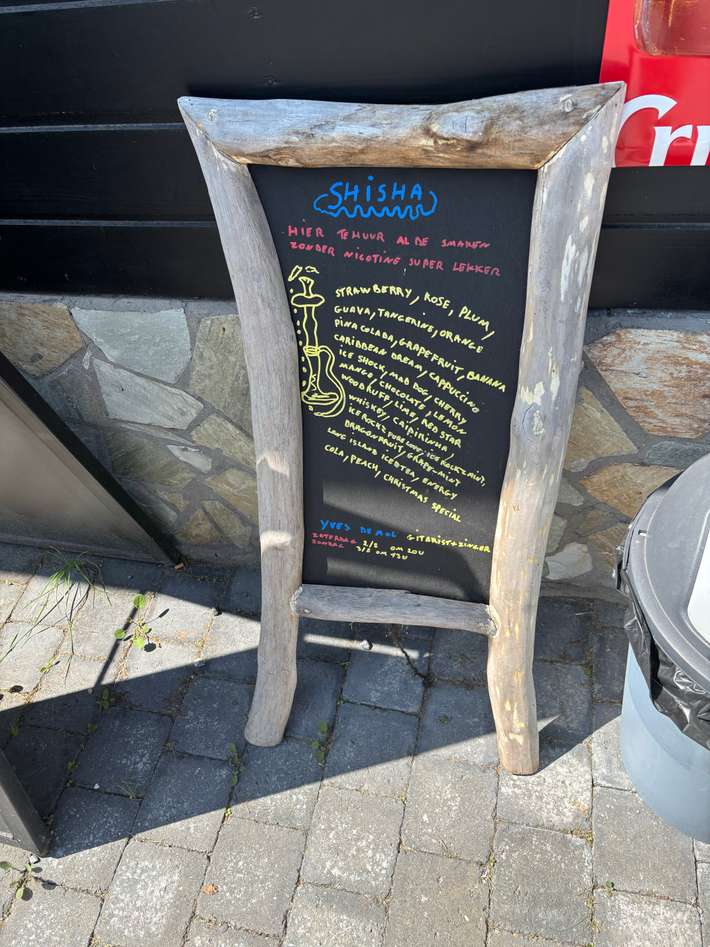 SHiSHA
HIER TE HUUR AL DE SMAKEN
ZONDER NICOTINE SUPER LEKKER
STRAWBERRY, ROSE, PLUM,
GUAVA, TANGERINE, ORANGE
PINA COLADA, GRAPEFRUIT, BANANA
CARIBBEAN DREAM, CAPPUCINO
ICE SHOCK, MAD DOG, CHERRY
MANGO, CHOCOLATE, LEMON
WOODRUFF, LIME, RED STAR
WHISKEY, CAIPIRINHA,
ICE ROCKZ PURE LOVE, ICE ROCKZ MINT,
DRAGONFRUIT, GRAPE-MINT
LONG ISLAND ICED TEA, ENERGY
COLA, PEACH, CHRISTMAS SPECIAL
YVES DE MOL GITARIST+ZINGER
ZATERDAG 2/8 OM 20U
ZONDAG 3/8 OM 13U
Cri